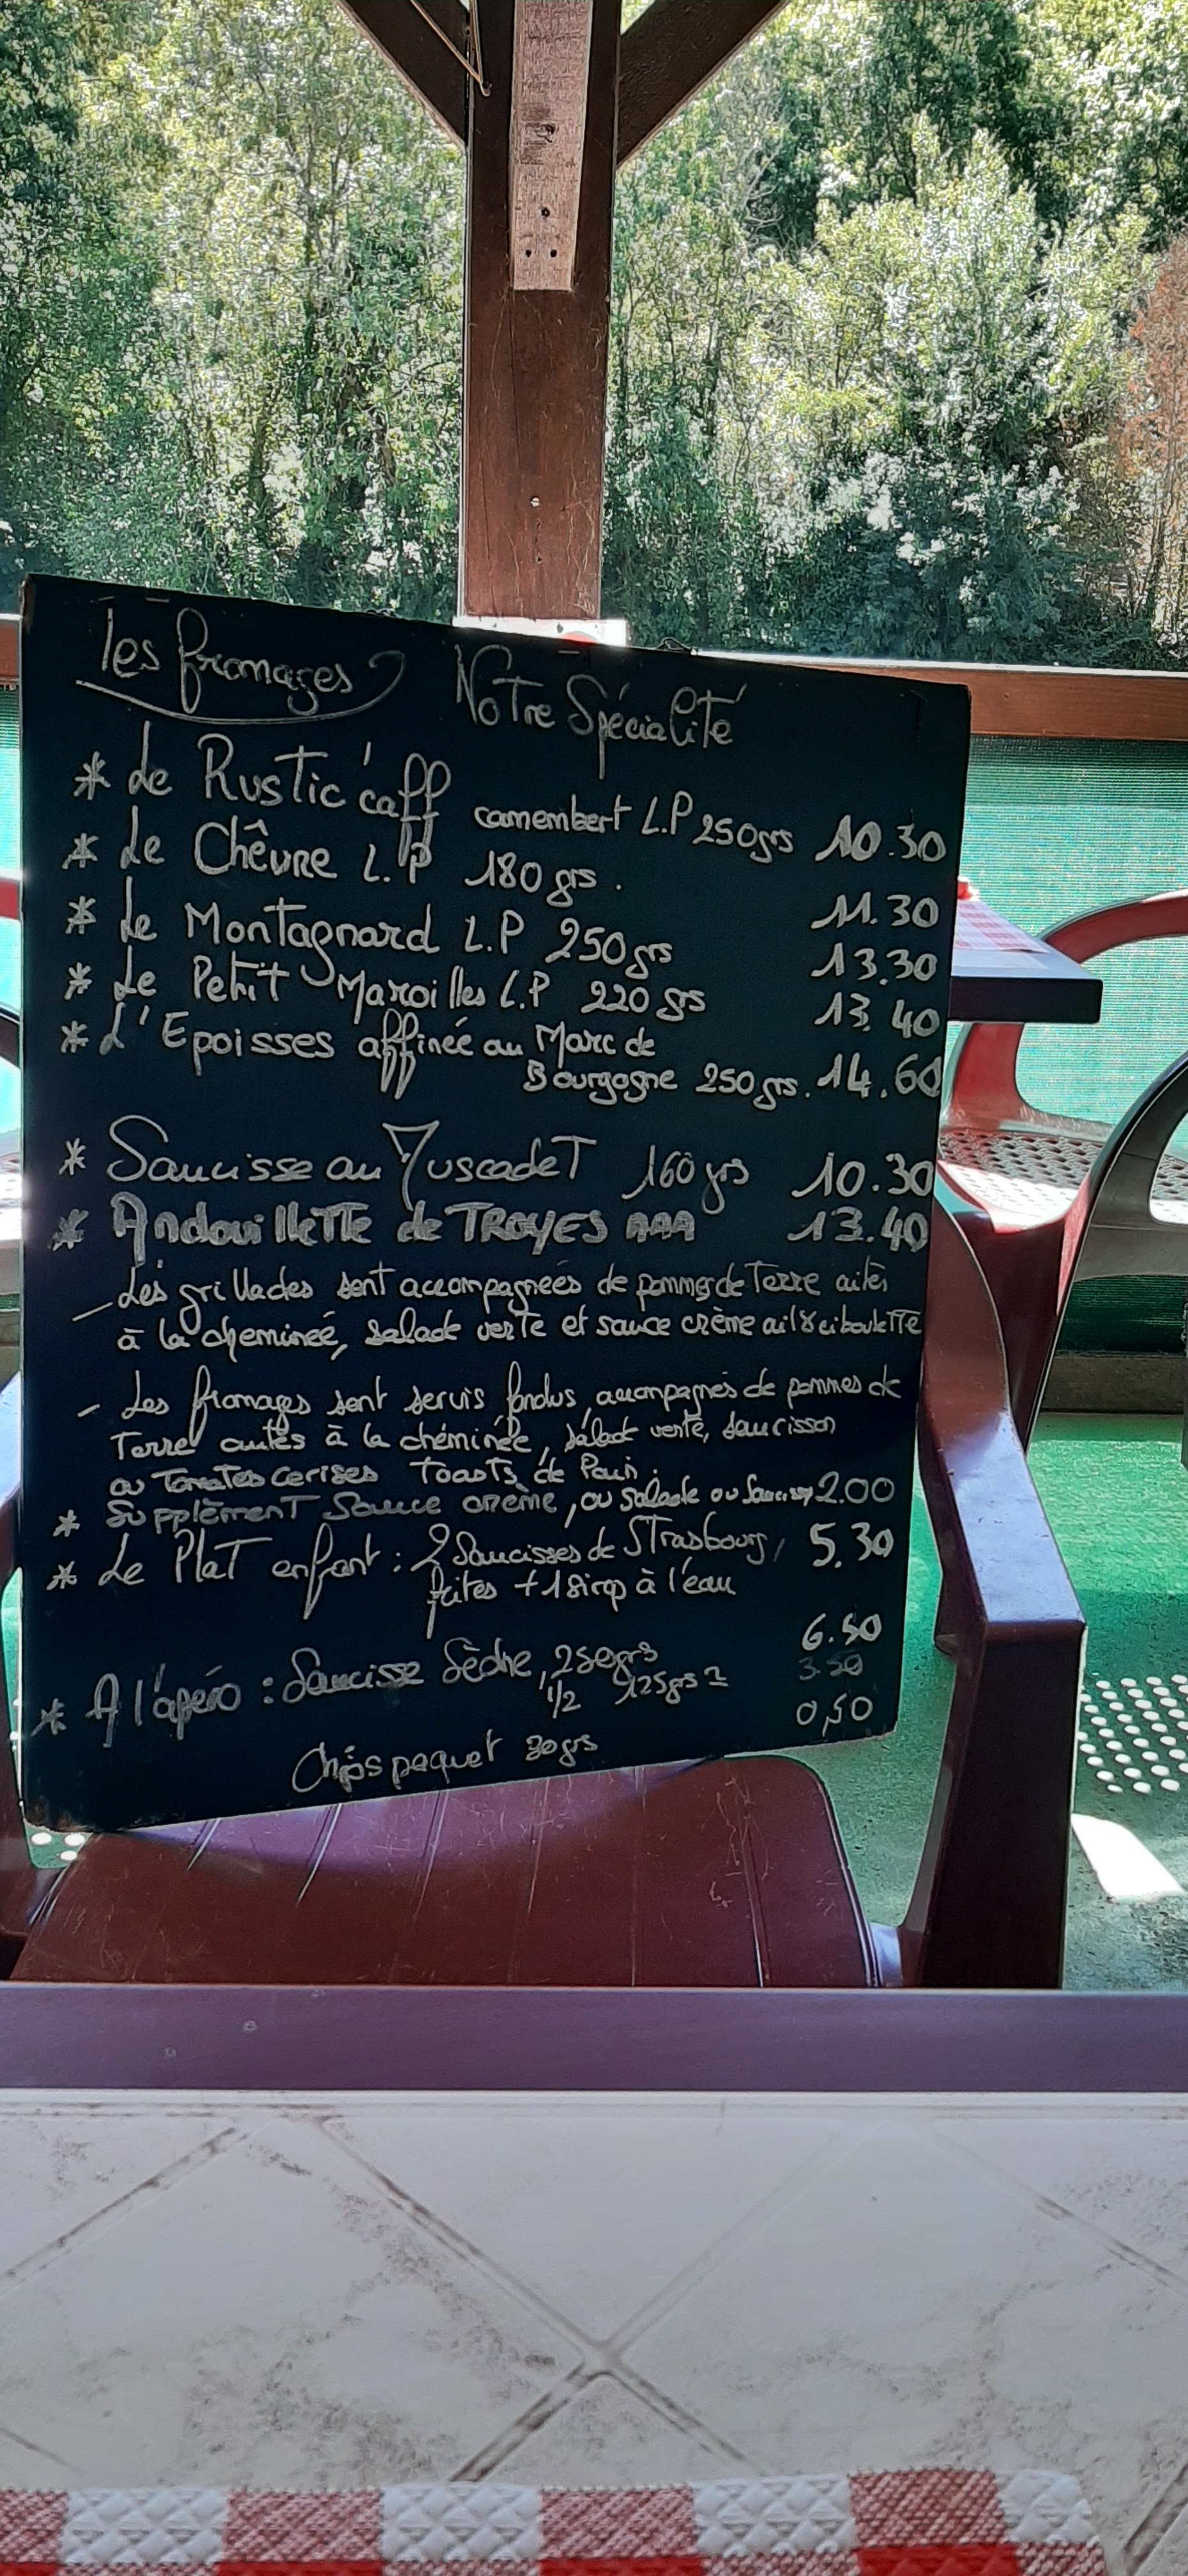 Les fromages Notre Spécialité
* Le Rustic'caff camembert L.P 250grs 10.30
* Le Chêvre L.P 180 grs. 11.30
* Le Montagnard L.P 250grs 13.30
* Le Petit Maroilles L.P 220 grs 13.40
* L'Epoisses affinée au Marc de
Bourgogne 250grs. 14.60
* Saucisse au Muscadet 160 grs 10.30
* Andouillette de TROYES AAA 13.40
- Les grillades sont accompagnées de pommes de Terre cuites
à la cheminée, salade verte et sauce crème ail & ciboulette
- Les fromages sont servis fondus, accompagnés de pommes de
Terre cuites à la chéminée, salade verte, saucisson
ou Tomates cerises Toasts de Pain.
* Supplèment Sauce crème, ou salade ou 2.00
* Le Plat enfant : 2 Saucisses de Strasbourg, 5.30
frites + 1 sirop à l'eau
* A l'apéro : Saucisse Sèche, 250grs 6.50
1/2 125grs = 3.50
Chips paquet 30grs 0,50